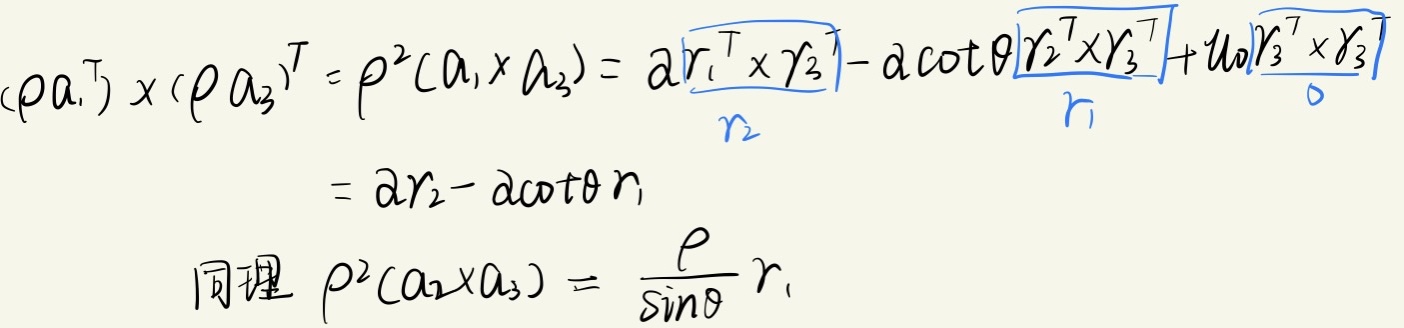 (ρa₁ᵀ) × (ρa₃)ᵀ = ρ²(a₁ × a₃) = α r₁ᵀ × r₃ᵀ − α cotθ r₂ᵀ × r₃ᵀ + u₀ r₃ᵀ × r₃ᵀ
r₂ r₁ 0
= α r₂ − α cotθ r₁
同理 ρ²(a₂ × a₃) = ρ/sinθ r₁